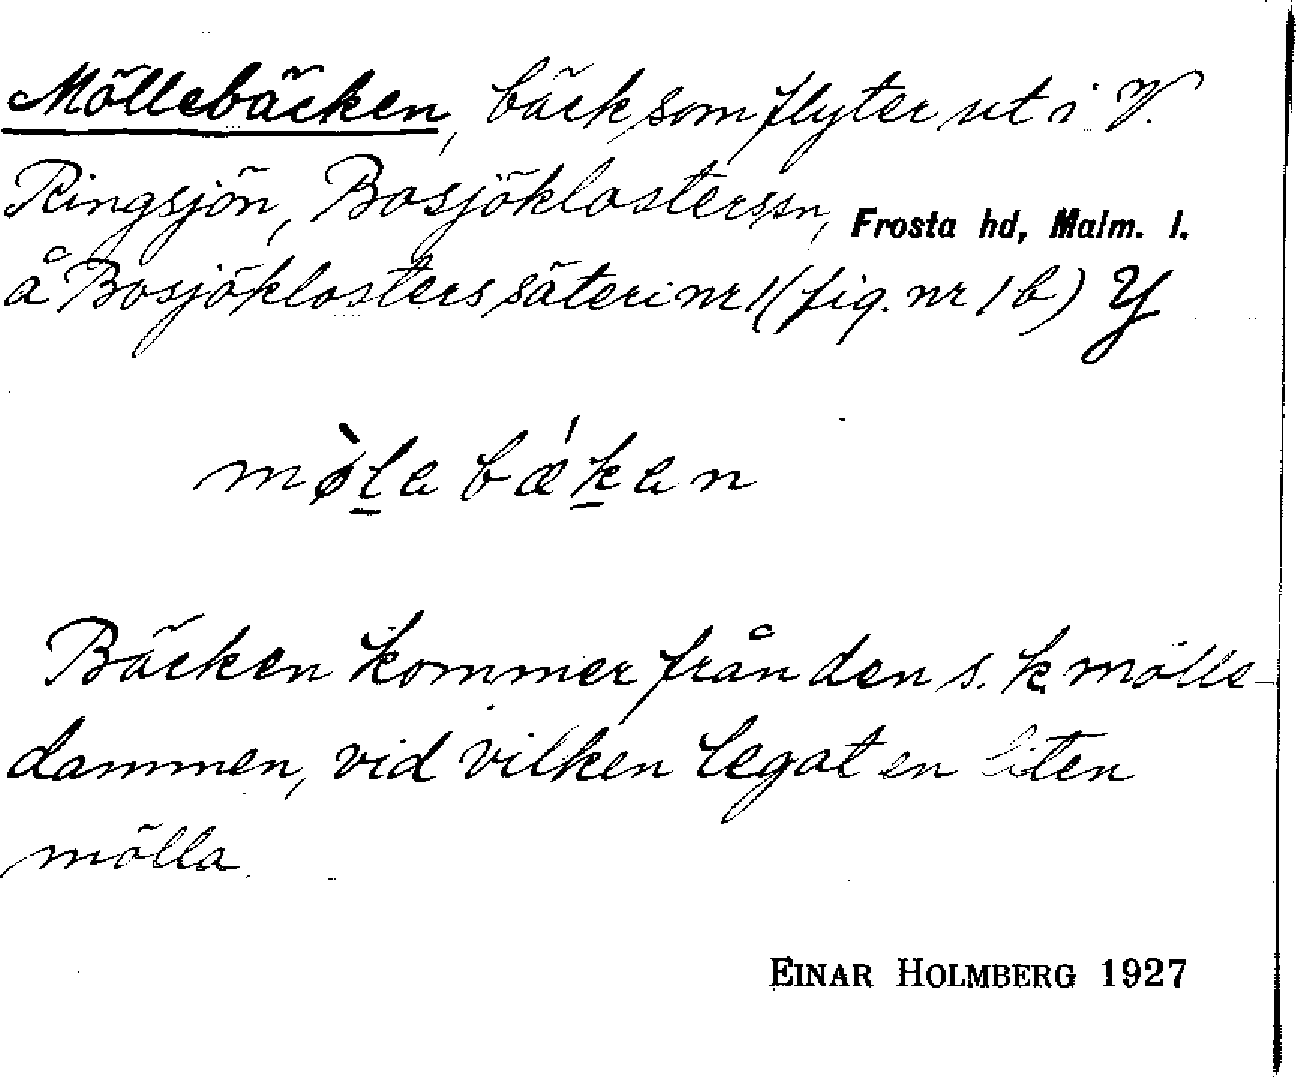 Möllebäcken, bäck som flyter ut i V.
Ringsjön, Bosjöklosterssn, Frosta hd, Malm. l.
å Bosjöklosters säteri nr 1 (fig. nr 1 b) Y
mø̀l̠a bǽk̠an
Bäcken kommer från den s. k. mölle-
dammen, vid vilken legat en liten
mölla.
EINAR HOLMBERG 1927